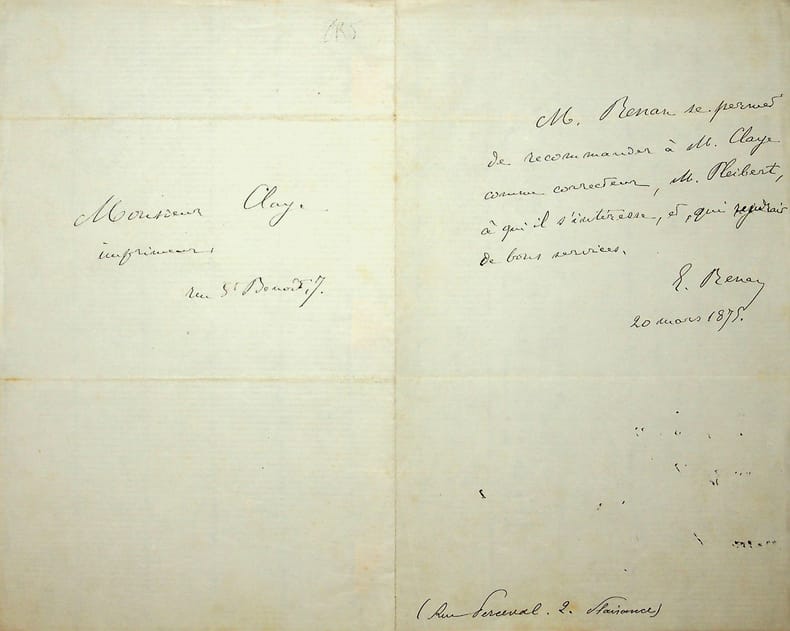 Monsieur Claye
imprimeur,
rue St Benoît, 7.
M. Renan se permet
de recommander à M. Claye
comme correcteur, M. Pleibert,
à qui il s'intéresse, et, qui rendrait
de bons services.
E. Renan
20 mars 1875.
(Rue Perceval. 2. Plaisance)